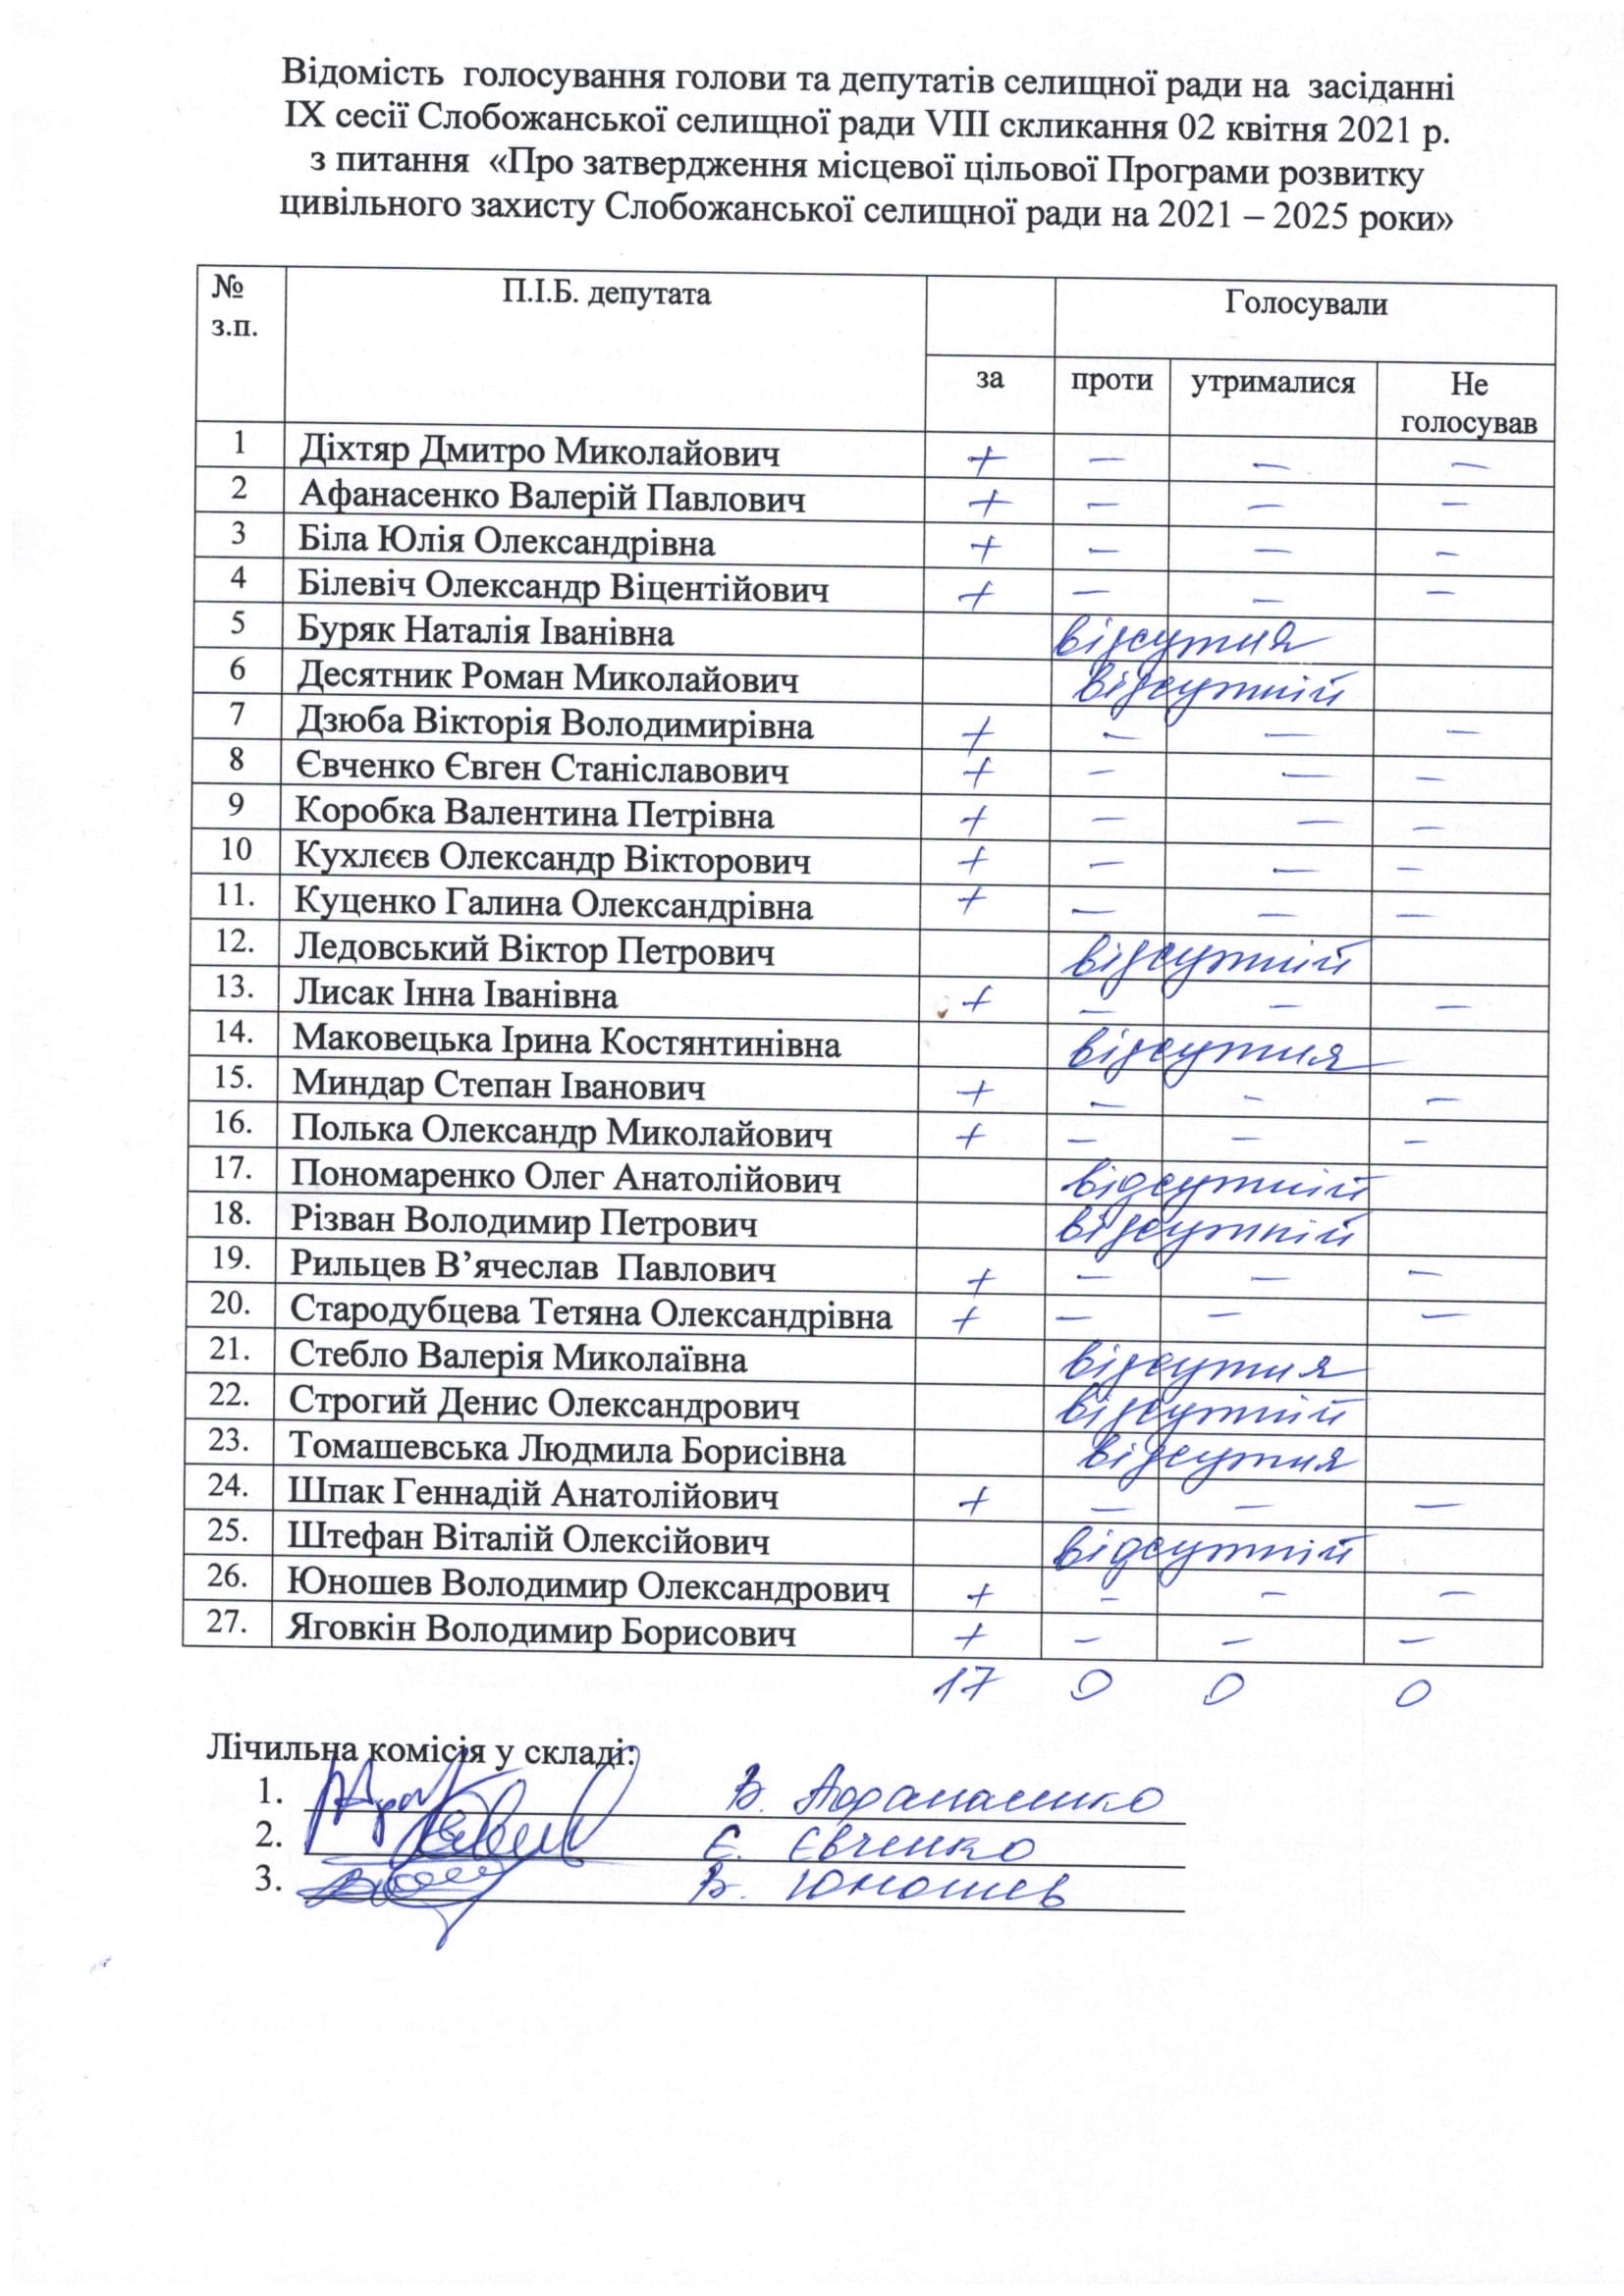 Відомість голосування голови та депутатів селищної ради на засіданні
ІХ сесії Слобожанської селищної ради VIII скликання 02 квітня 2021 р.
з питання «Про затвердження місцевої цільової Програми розвитку
цивільного захисту Слобожанської селищної ради на 2021 – 2025 роки»
№ з.п. П.І.Б. депутата Голосували
за проти утрималися Не голосував
1 Діхтяр Дмитро Миколайович + – – –
2 Афанасенко Валерій Павлович + – – –
3 Біла Юлія Олександрівна + – – –
4 Білевіч Олександр Віцентійович + – – –
5 Буряк Наталія Іванівна відсутня
6 Десятник Роман Миколайович відсутній
7 Дзюба Вікторія Володимирівна + – – –
8 Євченко Євген Станіславович + – – –
9 Коробка Валентина Петрівна + – – –
10 Кухлєєв Олександр Вікторович + – – –
11. Куценко Галина Олександрівна + – – –
12. Ледовський Віктор Петрович відсутній
13. Лисак Інна Іванівна + – – –
14. Маковецька Ірина Костянтинівна відсутня
15. Миндар Степан Іванович + – – –
16. Полька Олександр Миколайович + – – –
17. Пономаренко Олег Анатолійович відсутній
18. Різван Володимир Петрович відсутній
19. Рильцев В’ячеслав Павлович + – – –
20. Стародубцева Тетяна Олександрівна + – – –
21. Стебло Валерія Миколаївна відсутня
22. Строгий Денис Олександрович відсутній
23. Томашевська Людмила Борисівна відсутня
24. Шпак Геннадій Анатолійович + – – –
25. Штефан Віталій Олексійович відсутній
26. Юношев Володимир Олександрович + – – –
27. Яговкін Володимир Борисович + – – –
17 0 0 0
Лічильна комісія у складі:
1. В. Афанасенко
2. Є. Євченко
3. В. Юношев